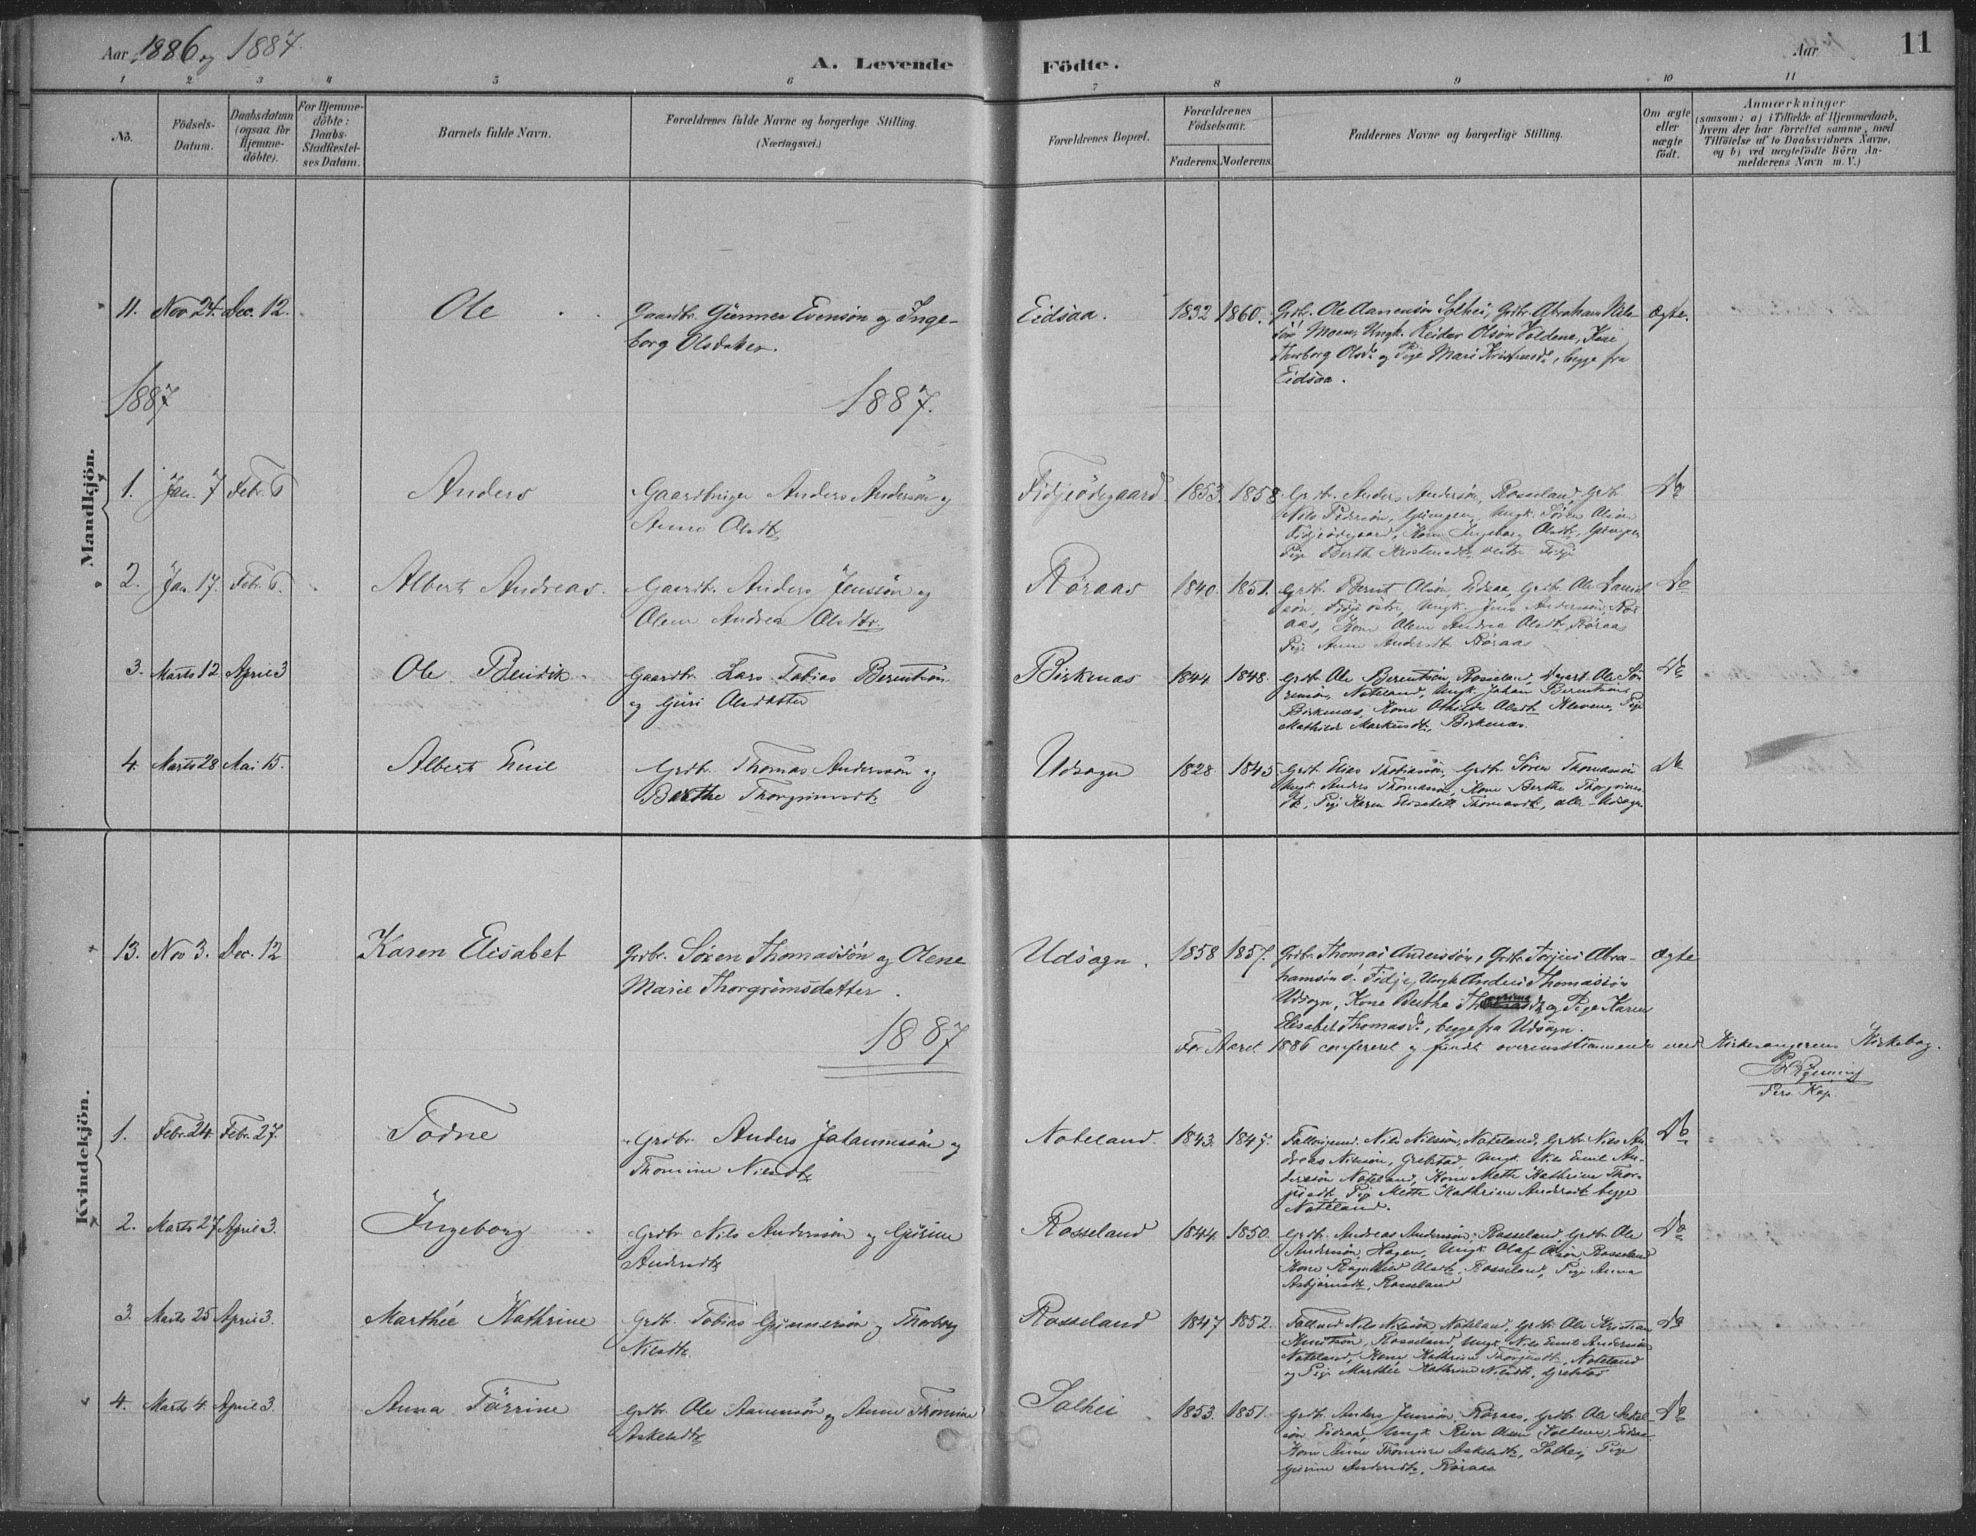 Aar 1886 og 1887.
A. Levende Födte.
Aar
11
1 2 3 4 5 6 7 8 9 10 11
No.
Födsels-Datum.
Daabsdatum (ogsaa for Hjemme-döbte).
For Hjemme-döbte: Daabs-Stadfæstel-ses Datum.
Barnets fulde Navn.
Forældrenes fulde Navne og borgerlige Stilling. (Næringsvei.)
Forældrenes Bopæl.
Forældrenes Födselsaar.
Faderens. Moderens.
Faddernes Navne og borgerlige Stilling.
Om ægte eller uægte födt.
Anmærkninger (saasom: a) i Tilfælde af Hjemmedaab, hvem der har forrettet samme, med Tilföielse af to Daabsvidners Navne, og b) ved uægtefödte Börn An-melderens Navn m. V.)
Mandkjön.
11. Nov 24. Dec. 12. Ole Gaardbr. Gunner Evensøn og Inge-
borg Olsdatter.
Eidsaa. 1832 1860. Grdbr. Ole Aanensøn Solhei, Grdbr. Abraham Nils-
søn Moen, Ungk. Reider Olsøn Voldene, Kone
Thorborg Olsd. og Pige Mari Kristensd., begge fra
Eidsaa.
ægte.
1887
1887.
1. Jan. 7 Febr. 6 Anders Gaardbruger Anders Andersøn og
Anne Olsdt.
Fidjeødegaard. 1853. 1858. Grdbr. Anders Andersøn, Rosseland, Grdbr.
Nils Pedersøn, Ungk. Søren Olsøn
Fidjeødegaard, Kone Ingeborg Olsdt.,
Pige Berth Kristensdt. vestre Fidje
Do
2. Jan. 17. Febr. 6. Albert Andreas. Gaardbr. Anders Jenssøn og
Olene Andrea Olsdtr.
Røraas 1840. 1851. Grdbr. Berent Olsøn, Eidsaa, Grdbr. Ole Laurit-
søn, Fidje østre, Ungk. Jens Anderssøn, Rør-
aas, Kone Olene Andrea Olsdt., Røraas
Pige Anne Andersdt. Røraas
Do
3. Marts 12 April 3 Ole Bendik Gaardbr. Lars Tobias Berentsøn
og Guri Olsdatter
Birkenas 1844 1848. Grdbr. Ole Berentsøn, Rosseland, Ole Sø-
rensøn, Noteland, Ungk. Johan Berentsøn
Birkenas, Kone Othilde Olsdt. Klevene, Pige
Mathilde Markusdt., Birkenas.
Do
4. Marts 28 Mai 15. Albert Emil Grdbr. Thomas Anderssøn og
Berthe Thorgrimsdt.
Udsogn 1828 1845 Grdbr. Elias Thobiassøn, Grdbr. Søren Thomassøn
Ungk. Anders Thomassøn, Kone Berthe Thorgrims-
dt., Pige Karen Elisabeth Thomasdt., alle Udsogn
Do
Kvindekjön.
13. Nov 3. Dec. 12 Karen Elisabet Grdbr. Søren Thomassøn og Olene
Marie Thorgrimsdatter.
Udsogn. 1858 1857. Grdbr. Thomas Anderssøn, Grdbr. Torjus Abra-
hamsøn ø. Fidje, Ungk. Anders Thomassøn
Udsogn, Kone Berthe og Pige Karen
Elisabet Thomasd., begge fra Udsogn.
ægte
1887
For Aaret 1886 confereret og fundet overensstemmende med Kirkesangerens Kirkebog.
Pers. Kap.
1. Febr. 24. Febr. 27. Todne Grdbr. Anders Johannessøn og
Thomine Nilsdt.
Noteland. 1843. 1847. Nils Nilssøn, Noteland, Grdbr. Nils An-
dreas Nilssøn, Grebstad, Ungk. Nils Emil An-
derssøn Noteland, Kone Mette Kathrine Thor-
Pige Mette Kathrine Andersdt. begge
Noteland.
Do
2. Marts 27 April 3. Ingeborg Grdbr. Nils Anderssøn og Gurine
Andersdt.
Rosseland 1844. 1850. Grdbr. Andreas Anderssøn, Rosseland, Grdbr. Ole
Anderssøn, Hagen, Ungk. Olaf Olsøn, Rosseland
Kone Ragnhild Olsdt., Rosseland, Pige Anna
Asbjørnsdt., Rosseland
Do
3. Marts 25 April 3. Marthée Kathrine Grdbr. Tobias Gunnersøn og Thorborg
Nilsdt.
Rosseland 1847 1852. Nils Nilssøn, Noteland, Grdbr. Ole Kristian
Knutsøn, Rosseland, Ungk. Nils Emil Anderssøn
Noteland, Kone Kathrine, Noteland
og Pige Marthée Kathrine Nilsdt., Grebstad
Do
4. Marts 4. April 3. Anna Törrine Grdbr. Ole Aanensøn og Anne Thomine
Askelsdt.
Solhei 1853. 1851. Grdbr. Anders Jenssøn, Røraas, Grdbr. Ole Askel-
søn Eidsaa, Ungk. Reier Olsen Voldene, Eidsaa
Kone Anne Thomine Askelsdt., Solhei, Pige
Gurine Andersdt., Røraas
Do